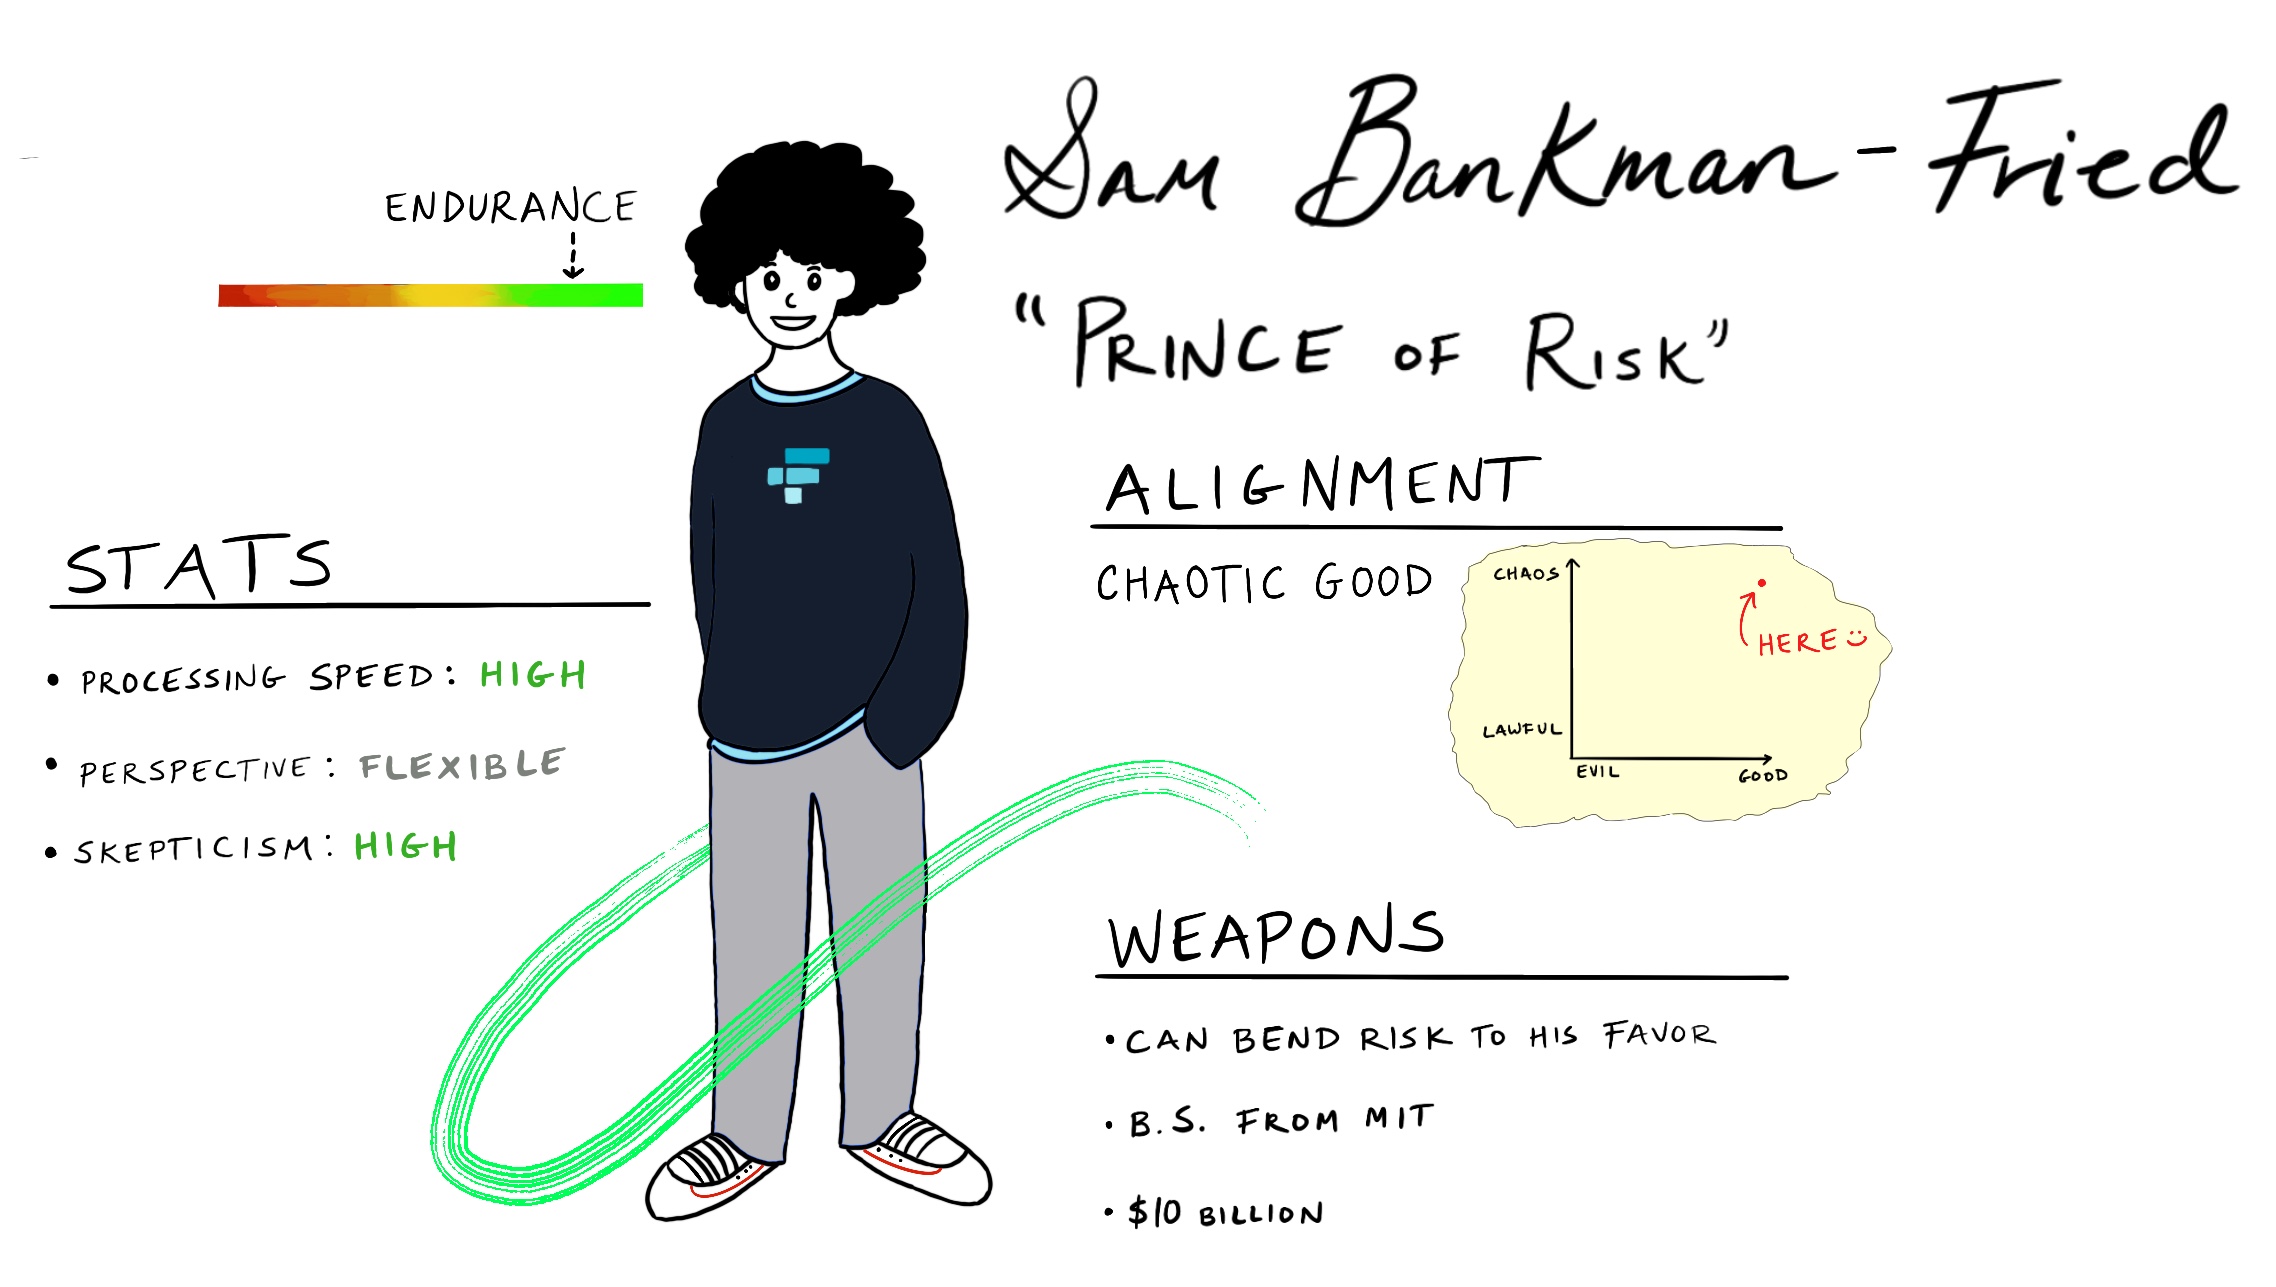 Sam Bankman-Fried
"PRINCE OF RISK"
ENDURANCE
STATS
• PROCESSING SPEED: HIGH
• PERSPECTIVE: FLEXIBLE
• SKEPTICISM: HIGH
ALIGNMENT
CHAOTIC GOOD
CHAOS
HERE :)
LAWFUL
EVIL
GOOD
WEAPONS
• CAN BEND RISK TO HIS FAVOR
• B.S. FROM MIT
• $10 BILLION